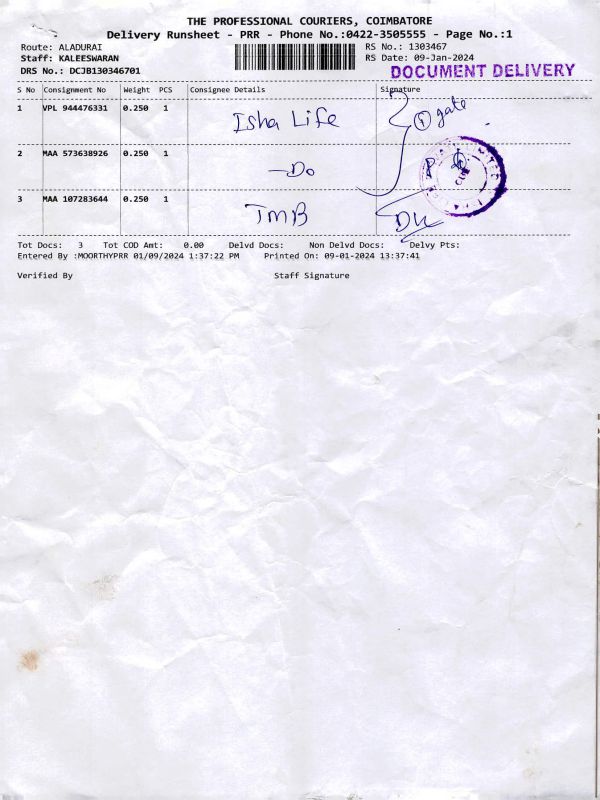 THE PROFESSIONAL COURIERS, COIMBATORE
Delivery Runsheet - PRR - Phone No.:0422-3505555 - Page No.:1
Route: ALADURAI RS No.: 1303467
Staff: KALEESWARAN RS Date: 09-Jan-2024
DRS No.: DCJB130346701 DOCUMENT DELIVERY
S No Consignment No Weight PCS Consignee Details Signature
1 VPL 944476331 0.250 1 Isha Life gate
2 MAA 573638926 0.250 1 -Do
3 MAA 107283644 0.250 1 TMB
Tot Docs: 3 Tot COD Amt: 0.00 Delvd Docs: Non Delvd Docs: Delvy Pts:
Entered By :MOORTHYPRR 01/09/2024 1:37:22 PM Printed On: 09-01-2024 13:37:41
Verified By Staff Signature